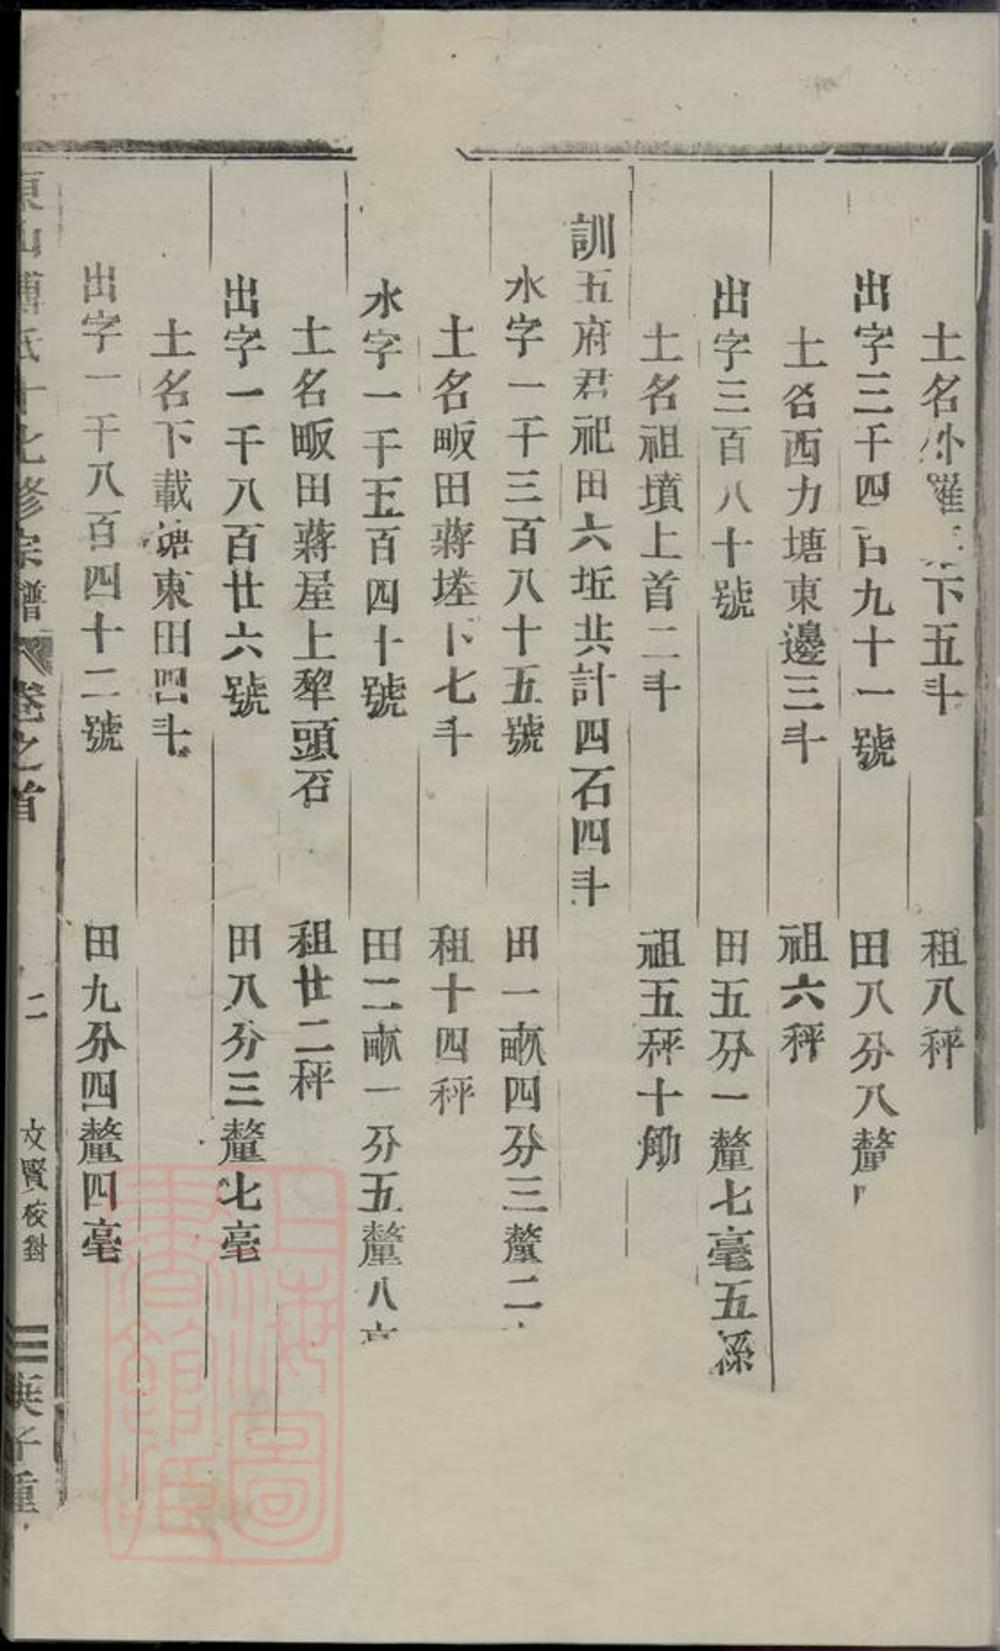 土名外羅下五斗 租八秤
出字三千四百九十一號 田八分八釐
土名西力塘東邊三斗 租六秤
出字三百八十號 田五分一釐七毫五系
土名祖墳上首二斗 租五秤十觔
訓五府君祀田六坵共計四石四斗
水字一千三百八十五號 田一畝四分三釐二
土名畈田蔣塋下七斗 租十四秤
水字一千五百四十號 田二畝一分五釐八毫
土名畈田蔣屋上犂頭石 租廿二秤
出字一千八百廿六號 田八分三釐七毫
土名下載塘東田四斗
出字一千八百四十二號 田九分四釐四毫
東山傅氏十七修宗譜 卷之首 二 文賢校對 庚子重
上海圖書館藏